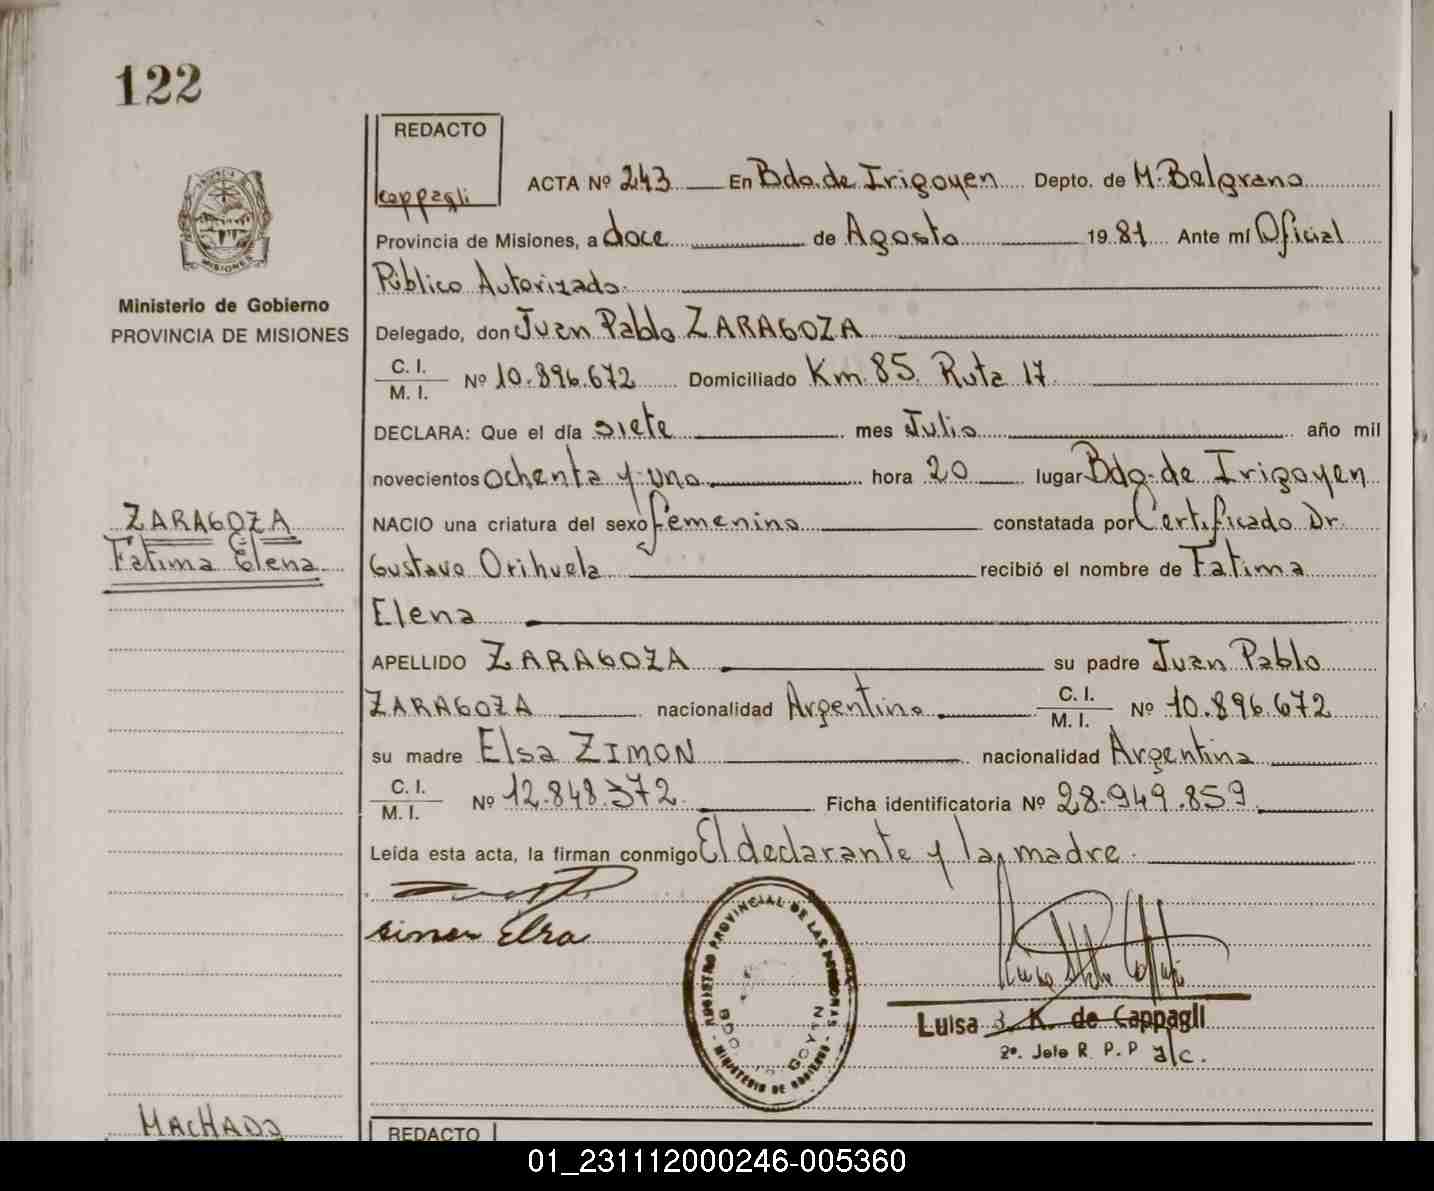 122
REDACTO
cappagli
ACTA Nº 243 En Bdo. de Irigoyen Depto. de M. Belgrano
Provincia de Misiones, a doce de Agosto 1981 Ante mí Oficial
Público Autorizado.
Ministerio de Gobierno
PROVINCIA DE MISIONES
Delegado, don Juan Pablo ZARAGOZA
C. I.
M. I. Nº 10.896.672 Domiciliado Km. 85. Ruta 17
DECLARA: Que el día siete mes Julio año mil
novecientos ochenta y uno hora 20 lugar Bdo. de Irigoyen
ZARAGOZA
Fatima Elena
NACIO una criatura del sexo femenino constatada por Certificado Dr.
Gustavo Orihuela recibió el nombre de Fatima
Elena
APELLIDO ZARAGOZA su padre Juan Pablo
ZARAGOZA nacionalidad Argentino C. I.
M. I. Nº 10.896.672
su madre Elsa ZIMON nacionalidad Argentina
C. I.
M. I. Nº 12.848.372 Ficha identificatoria Nº 28.949.859
Leída esta acta, la firman conmigo El declarante y la madre.
simon Elsa
REGISTRO PROVINCIAL DE LAS PERSONAS
MINISTERIO DE GOBIERNO
Luisa K. de Cappagli
2º. Jefe R. P. P a/c.
MACHADO
REDACTO
01_231112000246-005360